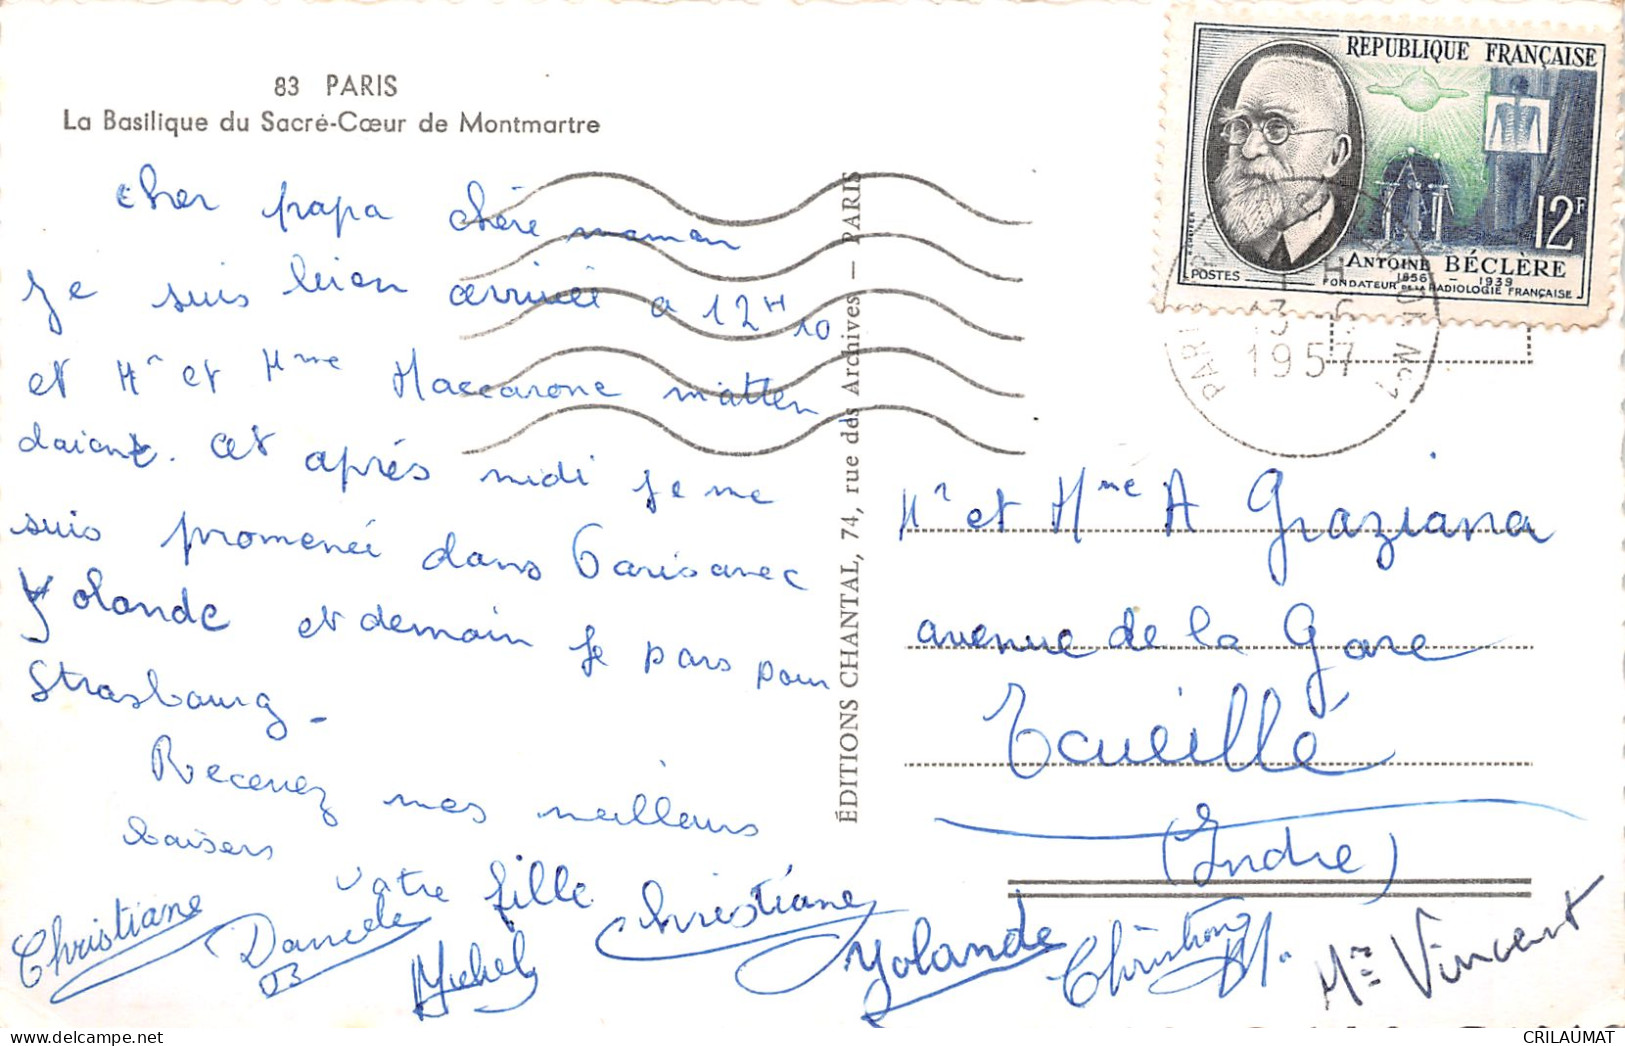 83 PARIS
La Basilique du Sacré-Cœur de Montmartre
cher papa chère maman
Je suis bien arrivée a 12H10
et Mr et Mme Maccarone m'atten
daient. cet après midi je me
suis promeneé dans Paris avec
Yolande et demain je pars pour
Strasbourg -
Recevez mes meilleurs
baisers
votre fille Christiane
Christiane
Daniele
Michel
Yolande
Mr Vincent
ÉDITIONS CHANTAL, 74, rue des Archives — PARIS
REPUBLIQUE FRANÇAISE
12F
ANTOINE BÉCLÈRE
1856 - 1939
FONDATEUR DE LA RADIOLOGIE FRANÇAISE
POSTES
1957
Mr et Mme A Graziana
avenue de la Gare
Ecueillé
(Indre)
CRILAUMAT